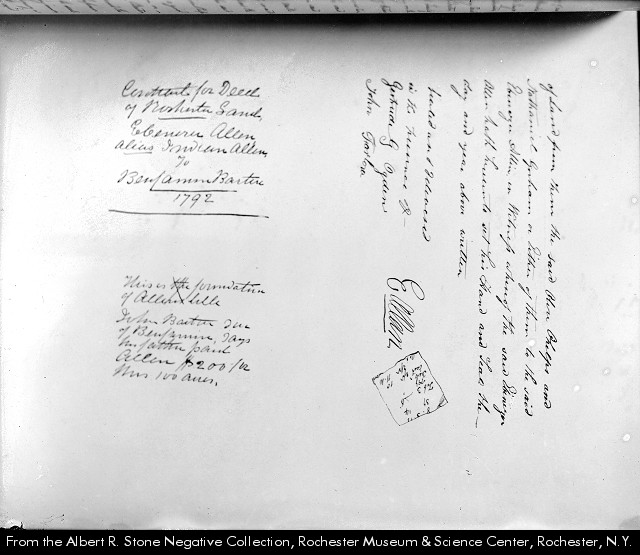 Contract for Deed
of Rochester Land,
Ebenezer Allen
alias Indian Allen,
To
Benjamin Barton
1792
This is the foundation
of Allen title
John Barton son
of Benjamin, says
his father paid
Allen $200 for
this 100 acres.
of Land from them the said Oliver Phelps and
Nathaniel Gorham or Either of them to the said
Allen in Witness whereof the said
Allen hath hereunto set his Hand and Seal the
day and year above written
Sealed and Delivered
in the presence of
Gertrude G. Ogden
John
E Allen.
From the Albert R. Stone Negative Collection, Rochester Museum & Science Center, Rochester, N.Y.